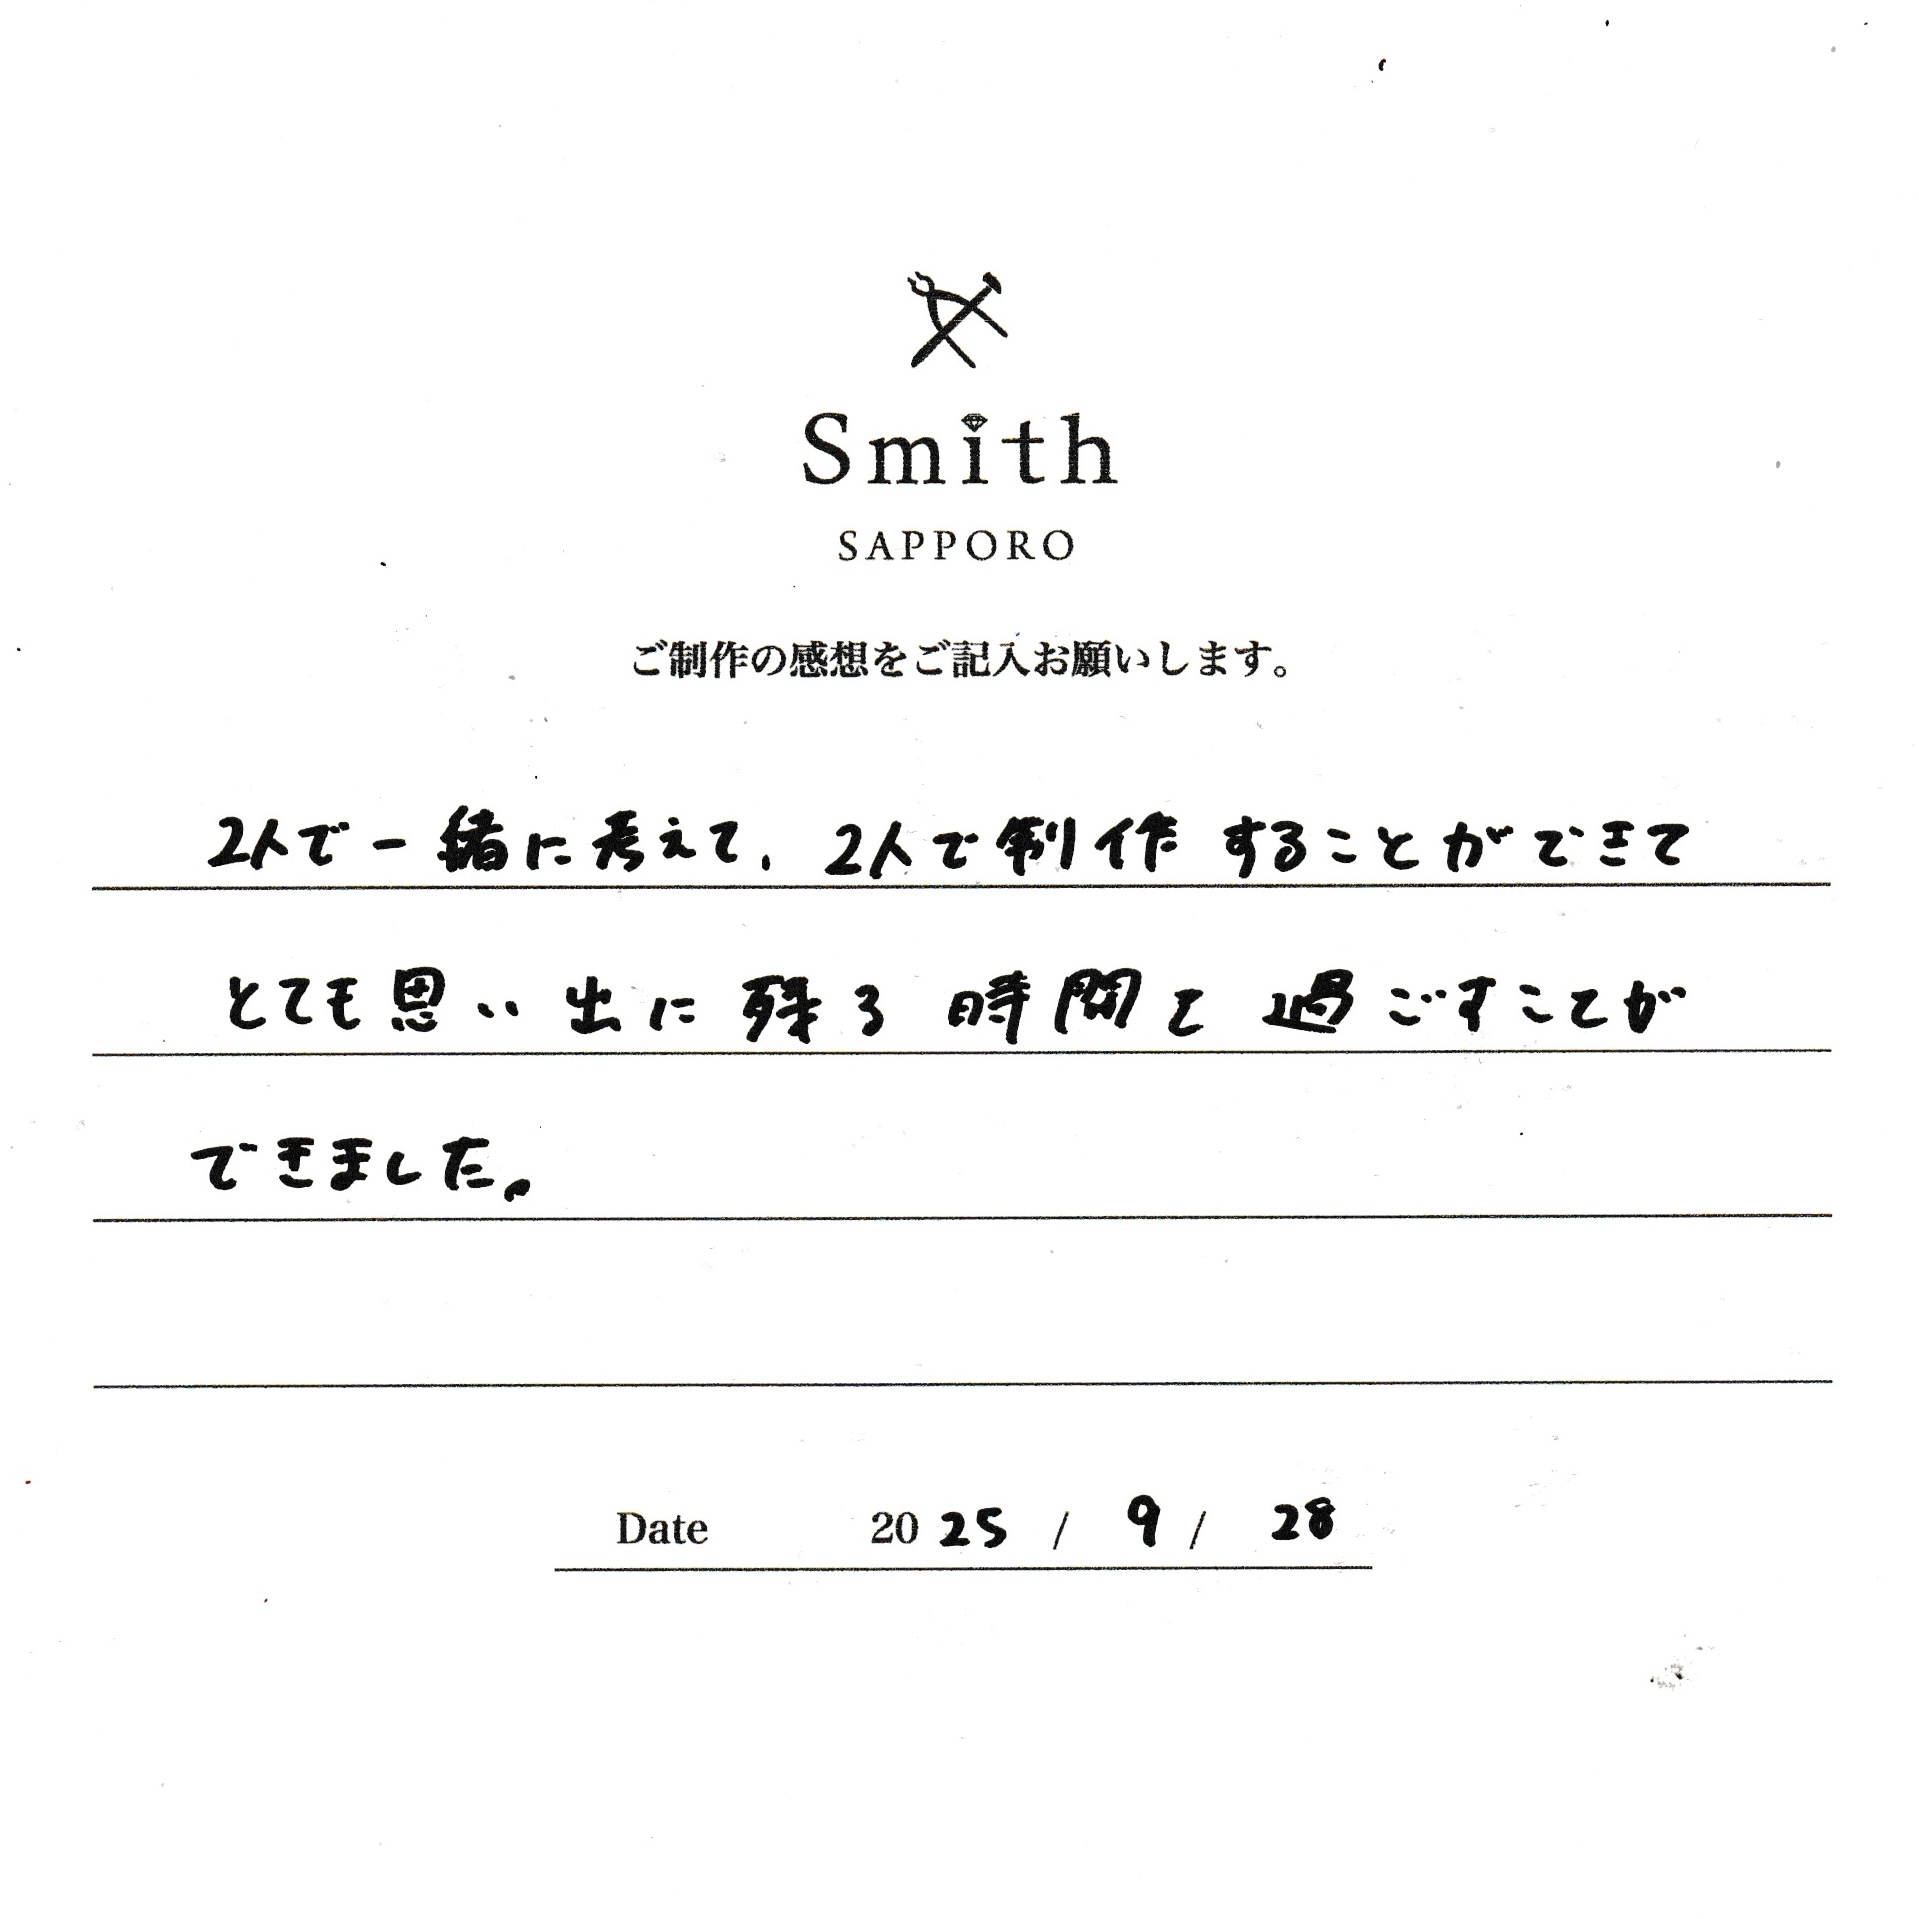 Smith
SAPPORO
ご制作の感想をご記入お願いします。
2人で一緒に考えて、2人で制作することができて
とても思い出に残る時間と過ごすことが
できました。
Date 2025 / 9 / 28